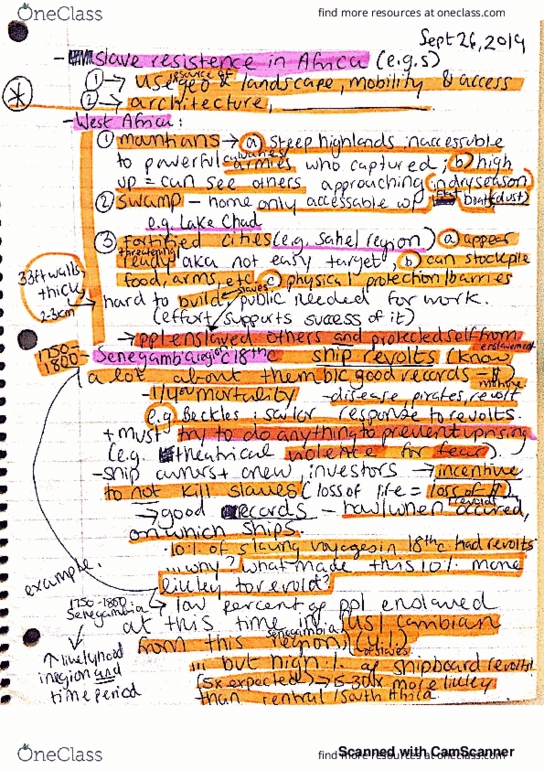 OneClass
find more resources at oneclass.com
Sept 26, 2019
- slave resistence in Africa (e.g.s)
① → use geo & landscape, mobility & access
② → architecture,
- West Africa:
① → ⓐ steep highlands inaccessable
to powerful armies who captured; ⓑ high
up = can see others approaching (in dry season)
② swamp - home only accessable w/ boat (dust)
e.g. Lake Chad
③ fortified cities (e.g. Sahel region) ⓐ appear
threatening
ready aka not easy target, ⓑ can stockpile
food, arms, etc. ⓒ physical protection/barries
33ft walls,
thick
2-3km
→ hard to build, public needed for work.
slaves
(effort supports success of it)
→ ppl enslaved others and protected self from
enslavement
1750-
1800-
Senegambia region C18th c ship revolts (know
a lot about them b/c good records -
- mortality - disease, pirates, revolt
e.g. Beckles: sailor response to revolts.
+ must try to do anything to prevent uprising
(e.g. theatrical violence for fear)
- ship owners + crew, investors → incentive
to not kill slaves (loss of life = loss of $)
→ good records - how/when occured,
revolts
on which ships.
· 10% of slaving voyages in 18th c had revolts
... why? what made this 10% more
likley to revolt?
example.
1750-1800
Senegambia
→ low percent of ppl enslaved
at this time in US/Carribean
from this region,
senegambia
of slaves
↑ likelyhood
in region and
time period
... but high % of shipboard revolts
(5x expected) → more likley
than central/South Africa.
OneClass
find more resources at oneclass.com
Scanned with CamScanner